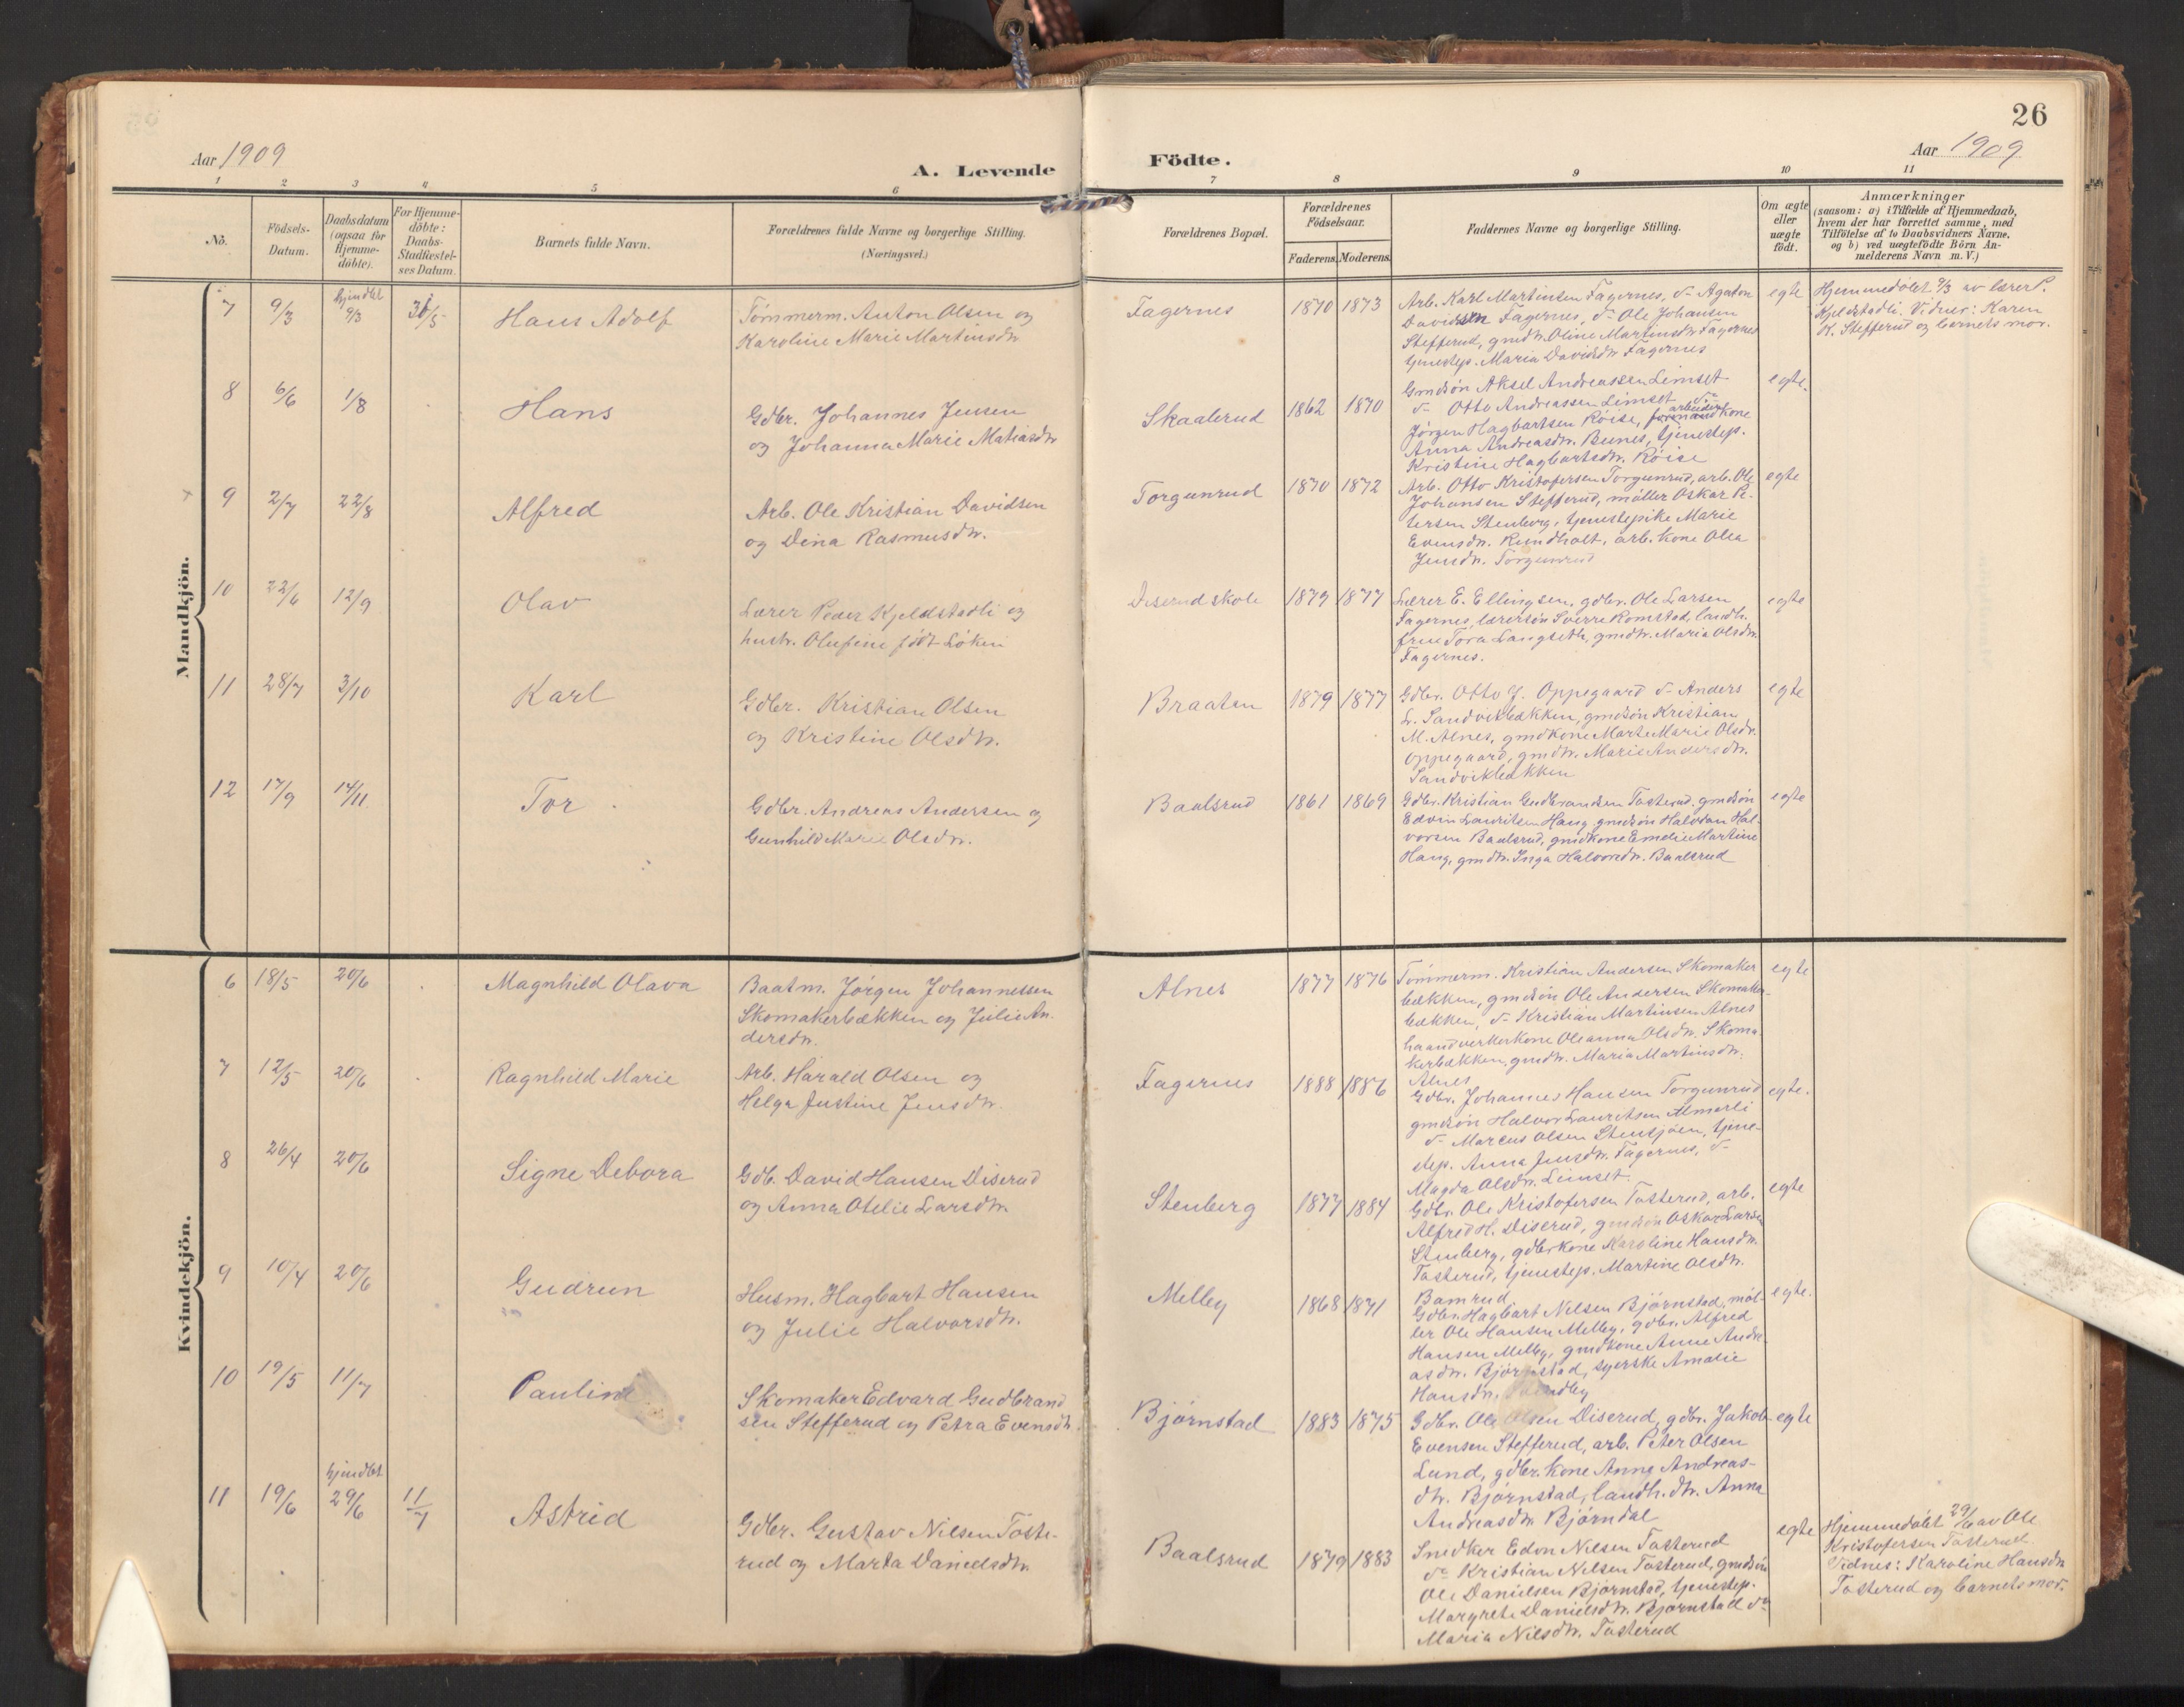 26
Aar 1909
A. Levende
Födte.
Aar 1909
1 2 3 4 5 6 7 8 9 10 11
No.
Födsels-Datum.
Daabsdatum (ogsaa for Hjemme-döbte).
For Hjemme-döbte: Daabs-Stadfæstel-ses Datum.
Barnets fulde Navn.
Forældrenes fulde Navne og borgerlige Stilling.
(Næringsvei.)
Forældrenes Bopæl.
Forældrenes Födselsaar.
Faderens. Moderens.
Faddernes Navne og borgerlige Stilling.
Om ægte eller uægte födt.
Anmærkninger
(saasom: a) i Tilfælde af Hjemmedaab,
hvem der har forrettet samme, med
Tilföielse af to Daabsvidners Navne,
og b) ved uægtefödte Börn An-
melderens Navn m. V.)
Mandkjön.
7 9/3 hjmdbt 9/3 31/5 Hans Adolf
Tømmerm. Anton Olsen og
Karoline Marie Martinsdtr
Fagernes 1870 1873
Arb. Karl Martinsen Fagernes, do Agaton
Davidsen Fagernes, do Ole Johansen
Stefferud, gmdtr. Oline Martinsdtr Fagernes
tjenestep. Maria Davidsdtr Fagernes
egte
Hjemmedøbt 9/3 av lærer P.
Kjeldstadli. Vidner: Karen
K. Stefferud og barnets mor.
8 6/6 1/8 Hans
Gdbr. Johannes Jensen
og Johanna Marie Matiasdtr
Skaalerud 1862 1870
Gmdsøn Aksel Andreassen Limset
do Otto Andreassen Limset do
Jørgen Hagbartsen Røise, formand arbeider kone
Anna Andreasdtr. Bunes, tjenestep.
Kristine Hagbartsdtr. Røise
egte.
9 2/7 22/8 Alfred
Arb. Ole Kristian Davidsen
og Dina Rasmusdtr.
Torgunrud 1870 1872
Arb. Otto Kristofersen Torgunrud, arb. Ole
Johansen Stefferud, møller Oskar Pe-
tersen Stenberg, tjenestepike Marie
Evensdtr. Rundholt, arb. kone Olea
Jensdtr. Torgunrud
egte
10 22/6 12/9 Olav
Lærer Peder Kjeldstadli og
hustr. Olufine født Løken
Diserud skole 1879 1877
Lærer E. Ellingsen, gdbr. Ole Larsen
Fagernes, lærersøn Sverre Romstad, landh.
frue Tora Langseth, gmdtr. Maria Olsdtr.
Fagernes.
egte
11 28/7 3/10 Karl
Gdbr. Kristian Olsen
og Kristine Olsdtr.
Braaten 1879 1877
Gdbr. Otto J. Oppegaard do Anders
L. Sandvikbækken, gmdsøn Kristian
M. Alnes, gmdkone Marte Marie Olsdtr.
Oppegaard, gmdtr. Marie Andersdtr.
Sandvikbækken
egte
12 17/9 14/11 Tor
Gdbr. Andreas Andersen og
Gunhild Marie Olsdtr.
Baalsrud 1861 1869
Gdbr. Kristian Gudbrandsen Tosterud, gmdsøn
Edvin Lauritsen Haug, gmdsøn Halvdan Hal-
vorsen Baalsrud, gmdkone Emelie Martine
Haug, gmdtr. Inga Halvorsdtr. Baalsrud
egte
Kvindekjön.
6 18/5 20/6 Magnhild Olava
Baatm. Jørgen Johannessen
Skomakerbækken og Julie An-
dersdtr.
Alnes 1877 1876
Tømmerm. Kristian Andersen Skomaker
bækken, gmdsøn Ole Andersen Skomaker-
bækken, do Kristian Martinsen Alnes
haandverkerkone Oleanna Olsdtr. Skoma
kerbækken, gmdtr. Maria Martinsdtr.
Alnes
egte
7 12/5 20/6 Ragnhild Marie
Arb. Harald Olsen og
Helga Justine Jensdtr.
Fagernes 1888 1886
Gdbr. Johannes Hansen Torgunrud
gmdsøn Halvor Lauritsen Almerli
do Marcus Olsen Stensjøen, tjene-
step. Anna Jensdtr. Fagernes, do
Magda Olsdtr. Limset.
egte.
8 26/4 20/6 Signe Debora
Gdb. David Hansen Diserud
og Anna Otelie Larsdtr.
Stenberg 1877 1884
Gdbr. Ole Kristofersen Tosterud, arb.
Alfred H. Diserud, gmdsøn Oskar Larsen
Stenberg, gdbrkone Karoline Hansdtr.
Tosterud, tjenestep. Martine Olsdtr.
Bamrud
egte
9 10/4 20/6 Gudrun
Husm. Hagbart Hansen
og Julie Halvorsdtr.
Melby 1868 1871
Gdbr. Hagbart Nilsen Bjørnstad, møl-
ler Ole Hansen Melby, gdbr. Alfred
Hansen Melby, gmdkone Anne Andre-
asdtr. Bjørnstad, syerske Amalie
Hansdtr.
egte.
10 19/5 11/7 Pauline
Skomaker Edvard Gudbrand
sen Stefferud og Petra Evensdtr.
Bjørnstad 1883 1875
Gdbr. Ole Olsen Diserud, gdbr. Jakob
Evensen Stefferud, arb. Peter Olsen
Lund, gdbr. kone Anne Andreas-
dtr. Bjørnstad, landh. dtr. Anna
Andreasdtr Bjørndal
egte
11 19/6 hjmdbt 29/6 11/7 Astrid
Gdbr. Gustav Nilsen Toste-
rud og Marta Danielsdtr.
Baalsrud 1879 1883
Snedker Edon Nilsen Tosterud
do Kristian Nilsen Tosterud, gmdsøn
Ole Danielsen Bjørnstad, tjenestep.
Margrete Danielsdtr. Bjørnstad do
Maria Nilsdtr. Tosterud
egte
Hjemmedøbt 29/6 av Ole
Kristofersen Tosterud.
Vidner: Karoline Hansdtr
Tosterud og barnets mor.